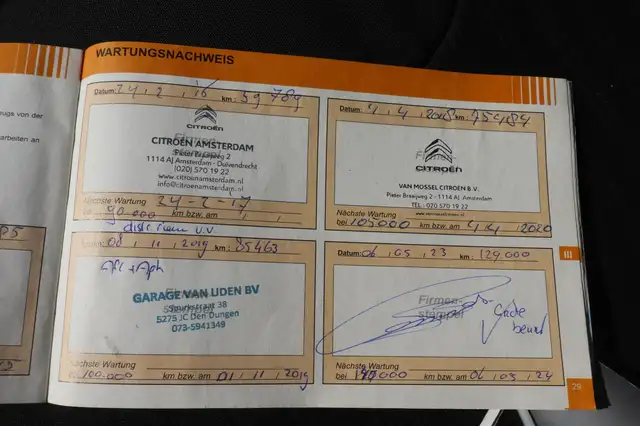 WARTUNGSNACHWEIS
eugs von der
arbeiten an
Datum: 24 . 2 . 16 km: 59 789
CITROËN
CITROËN AMSTERDAM
Firmen-
Pieter Braaijweg 2
1114 AJ Amsterdam - Duivendrecht
(020) 570 19 22
www.citroenamsterdam.nl
info@citroenamsterdam.nl
Nächste Wartung 24 - 2 - 17
bei 90.000 km bzw. am
Datum: 4 . 4 . 2018 km: 75484
CITROËN
VAN MOSSEL CITROEN B.V.
Pieter Braaijweg 2 - 1114 AJ Amsterdam
TEL.: (020) 570 19 22
Nächste Wartung
bei 105000 km bzw. am 4 . 4 . 2020
Datum: 08 . 11 . 2019 km: 85463
GARAGE VAN LIJDEN BV
Spurkstraat 38
5275 JC Den Dungen
073-5941349
Nächste Wartung
bei 100.000 km bzw. am 01 . 11 . 2019
Datum: 06 . 05 . 23 km: 129.000
Firmen-
stempel
Nächste Wartung
km bzw. am 06 . 05 . 24
III
29